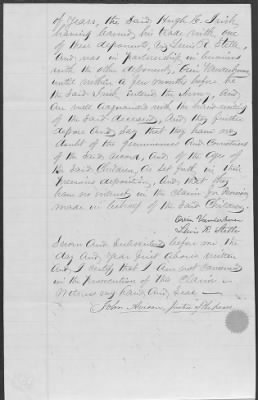 of years, the said Hugh C. Irish
having learned his trade with one
of these deponents, Lewis R. Stelle,
and was in partnership in business
with the other deponent, Oven Vanderhoven
until within a few months before he
the said Irish entered the Army, and
are well acquainted with the
of the said deceased, and they further
depose and say that they have no
doubt of the genuineness and correctness
of the said record, and of the ages
of the said Children, as set forth in their
previous deposition, and that they
have no interest in the claim for Pension
made in behalf of the said Children.
Lewis R. Stelle
Sworn and subscribed before me the
day and year first above written
and I certify that I am not concerned
in the prosecution of the claim
Witness my hand and seal
John Avison, Justice of the Peace